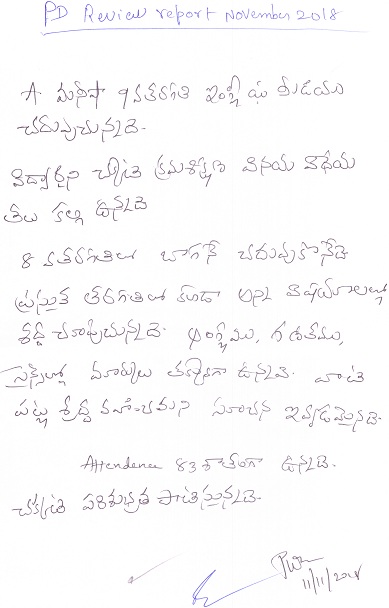 PD Review report November 2018
A. మనీషా 9 వతరగతి ఇంగ్లీషు మీడియం
చదువుచున్నది.
విద్యార్థిని చక్కటి క్రమశిక్షణ వినయ విధేయ
తలు కల్గి ఉన్నది
8 వతరగతిలో బాగానే చదువుకొనేది
ప్రస్తుత తరగతిలో కూడా అన్ని విషయాలల్లో
శ్రద్ధ చూపుచున్నది. ఆంగ్లము, గణితము,
సైన్స్‌ల్లో మార్కులు తక్కువగా ఉన్నవి. వాటి
పట్ల శ్రద్ధ వహించమని సూచన ఇవ్వడమైనది.
Attendence 83 శాతంగా ఉన్నది.
చక్కటి పరిశుభ్రత పాటిస్తున్నది.
11/11/2018